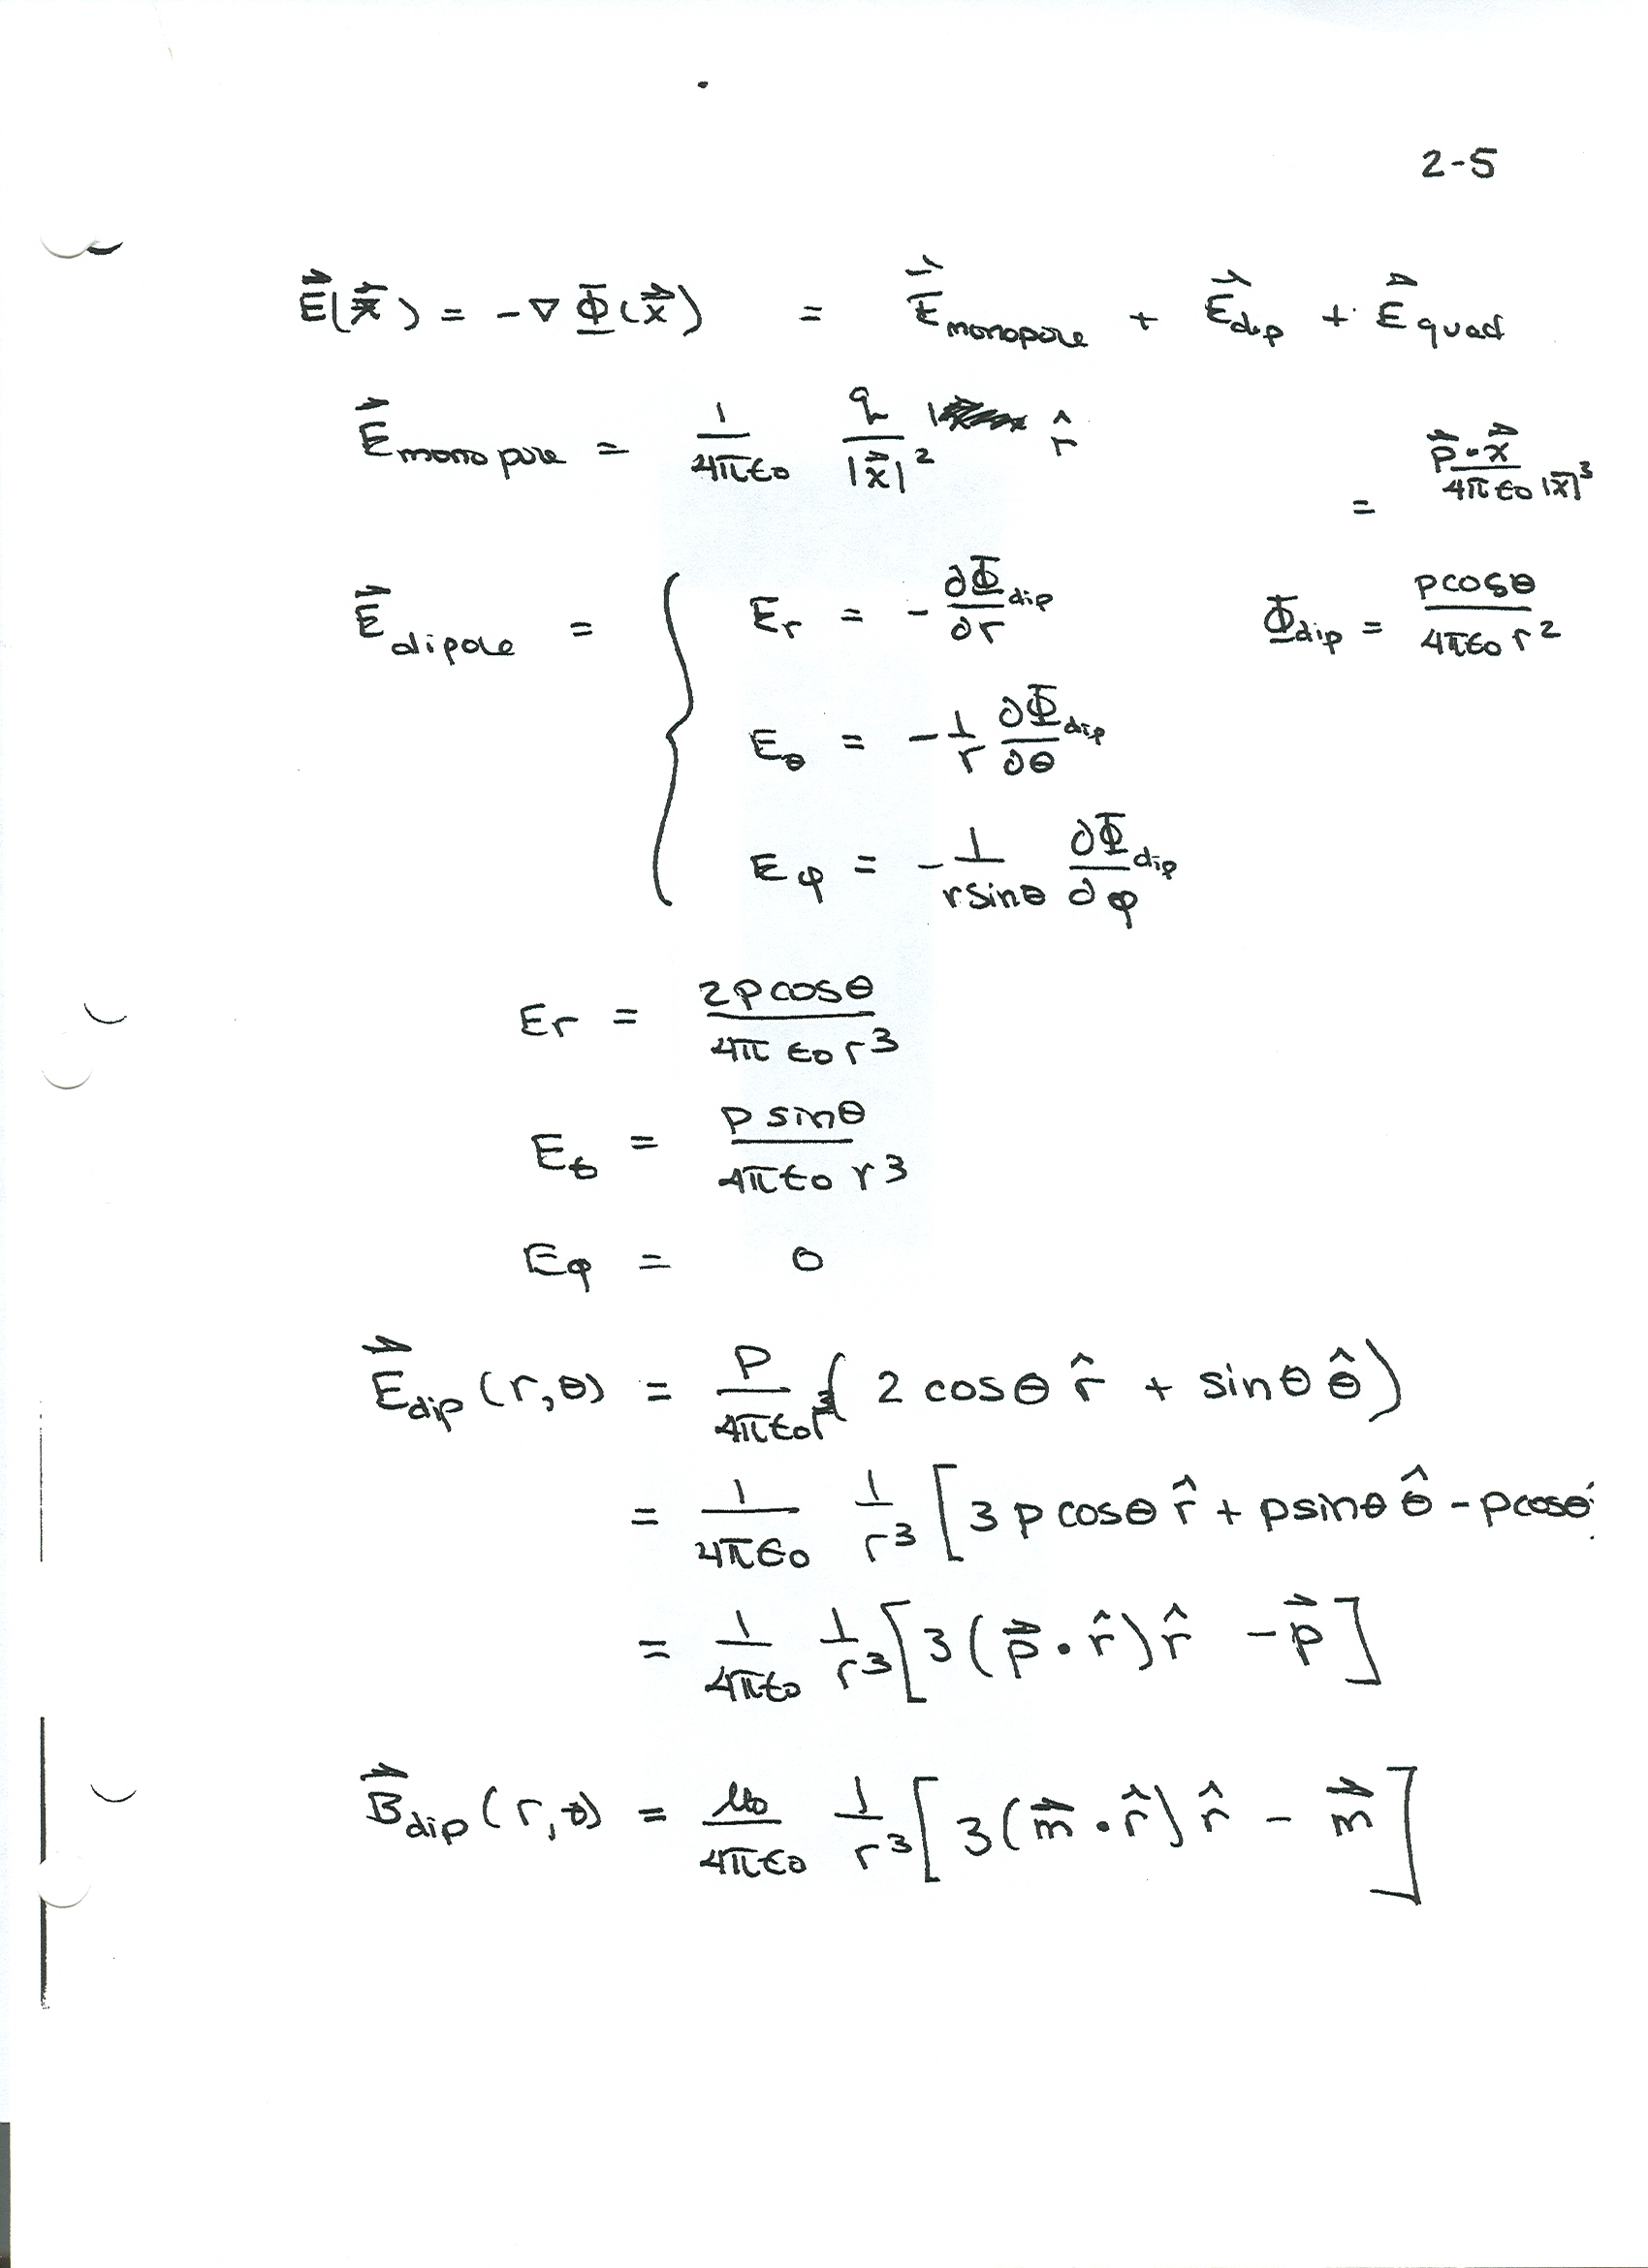 2-5
\vec{E}(\vec{x}) = -∇ Φ(\vec{x}) = \vec{E}_{monopole} + \vec{E}_{dip} + \vec{E}_{quad}
\vec{E}_{monopole} = \frac{1}{4πε_0} \frac{q}{|\vec{x}|^2} \hat{r}
= \frac{\vec{p}·\vec{x}}{4πε_0 |\vec{x}|^3}
\vec{E}_{dipole} = { E_r = -\frac{∂Φ_{dip}}{∂r} Φ_{dip} = \frac{p cosθ}{4πε_0 r^2}
E_θ = -\frac{1}{r} \frac{∂Φ_{dip}}{∂θ}
E_φ = -\frac{1}{r sinθ} \frac{∂Φ_{dip}}{∂φ}
E_r = \frac{2p cosθ}{4πε_0 r^3}
E_θ = \frac{p sinθ}{4πε_0 r^3}
E_φ = 0
\vec{E}_{dip}(r,θ) = \frac{p}{4πε_0 r^3} ( 2 cosθ \hat{r} + sinθ \hat{θ} )
= \frac{1}{4πε_0} \frac{1}{r^3} [ 3 p cosθ \hat{r} + p sinθ \hat{θ} - p cosθ
= \frac{1}{4πε_0} \frac{1}{r^3} [ 3 (\vec{p}·\hat{r}) \hat{r} - \vec{p} ]
\vec{B}_{dip}(r,θ) = \frac{μ_0}{4πε_0} \frac{1}{r^3} [ 3 (\vec{m}·\hat{r}) \hat{r} - \vec{m} ]